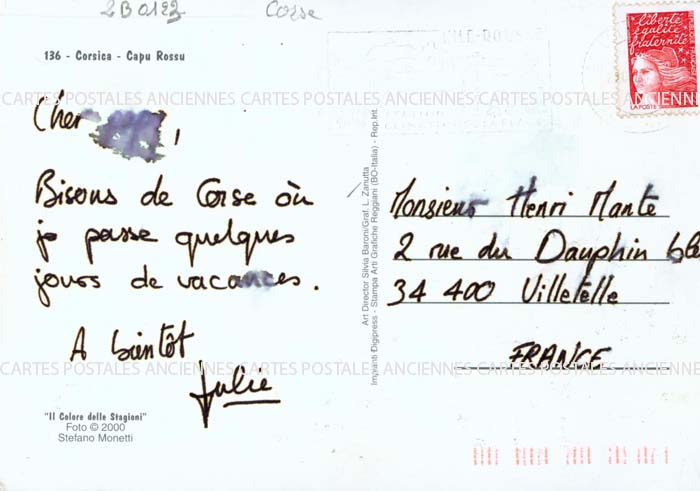 2B0123 Corse
136 - Corsica - Capu Rossu
liberté
égalité
fraternité
LA POSTE
CARTES POSTALES ANCIENNES CARTES POSTALES ANCIENNES CARTES POSTALES ANCIENNES
Cher ,
Bisous de Corse où
je passe quelques
jours de vacances.
A bientôt
Julie
"Il Colore delle Stagioni"
Foto © 2000
Stefano Monetti
Art Director Silvia Baroni/Graf. L. Zanutta
Impianti Digipress - Stampa Arti Grafiche Reggiani (BO-Italia) - Rep.Int.
Monsieur Henri Mante
2 rue du Dauphin
34 400 Villetelle
FRANCE
CARTES POSTALES ANCIENNES CARTES POSTALES ANCIENNES CARTES POSTALES ANCIENNES